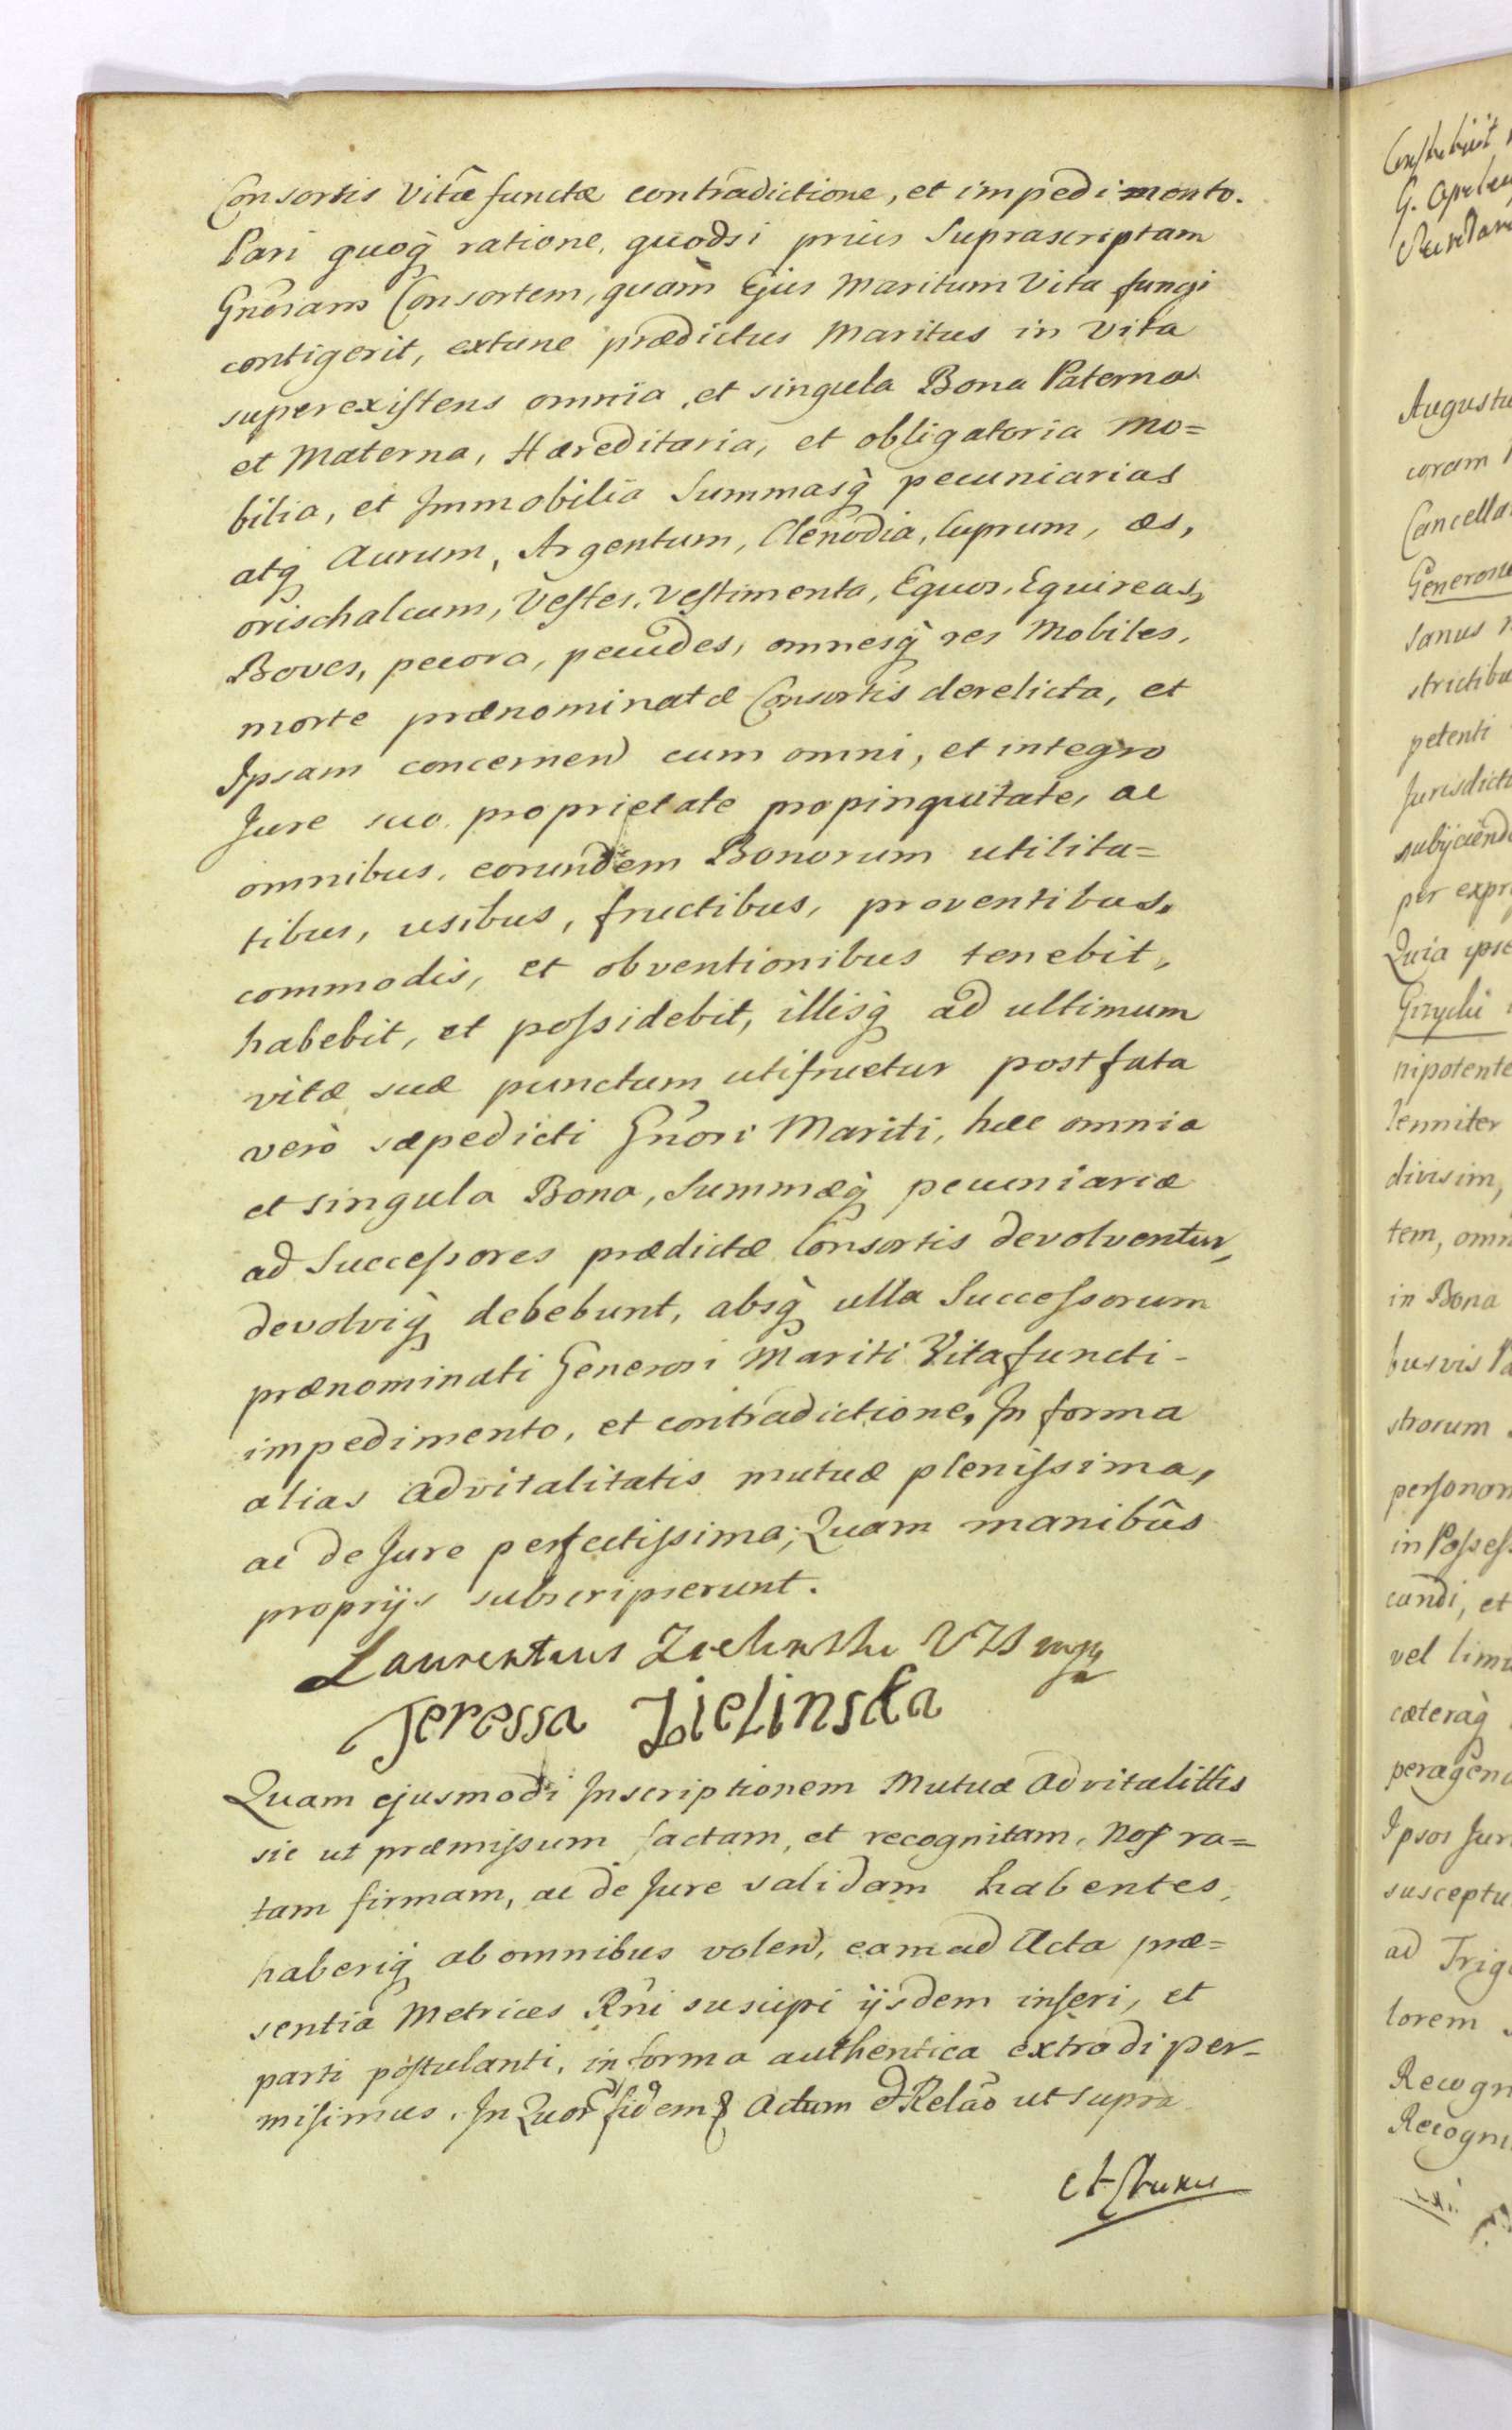 Consortis Vitæ functæ contradictione, et impedimento.
Pari quoq̀ ratione, quodsi prius Suprascriptam
Gnôsam Consortem, quàm Ejus Maritum Vita fungi
contigerit, extunc prædictus Maritus in Vita
superexistens omnia, et singula Bona Paterna
et Materna, Hæreditaria, et obligatoria Mo=
bilia, et Immobilia Summasq̀ pecuniarias
atq̀ Aurum, Argentum, Clenodia, Cuprum, æs,
orischalcum, Vestes, Vestimenta, Equos, Equireas,
Boves, pecora, pecudes, omnesq̀ res Mobiles,
morte prænominatæ Consortis derelicta, et
Ipsam concernen cum omni, et integro
Jure suo proprietate propinquitate, ac
omnibus, eorundem Bonorum utilita=
tibus, usibus, fructibus, proventibus,
commodis, et obventionibus tenebit,
habebit, et possidebit, illisq̀ ad ultimum
vitæ suæ punctum utifruetur post fata
verò sæpedicti Gnôsi Mariti, hæc omnia
et singula Bona, Summæq̀ pecuniariæ
ad Successores prædictæ Consortis devolventur,
devolviq̀ debebunt, absq̀ ulla Successorum
prænominati Generosi Mariti Vita functi-
impedimento, et contradictione, In forma
alias advitalitatis mutuæ plenissima,
ac de Jure perfectissima; Quam manibûs
proprijs subscripserunt.
Laurentius Zielinski VZS mpp
Teressa Zielinska
Quam ejusmodi Inscriptionem Mutuæ advitalittis
sic ut præmissum factam, et recognitam, Nos ra=
tam firmam, ac de Jure validam habentes,
haberiq̀ ab omnibus volen, eam ad Acta præ=
sentia Metrices Rñi suscipi ijsdem inseri, et
parti postulanti, in forma authentica extradi per-
misimus. In Quor fidem Actum & Relaõ ut supra
Constituit
G.
Augustu
coram
Cancella
Generosu
sanus
strictibu
petenti
Jurisdicti
subijciend
per expr
Quia ipse
Gizycki
nipotente
lenniter
divisim,
tem, omn
in Bona
busvis Pa
strorum
personom
in Possess
candi, et
vel limi
cæteraq̀
peragend
Ipsos Jur
susceptu
ad Trigi
lorem
Recogn
Recogni